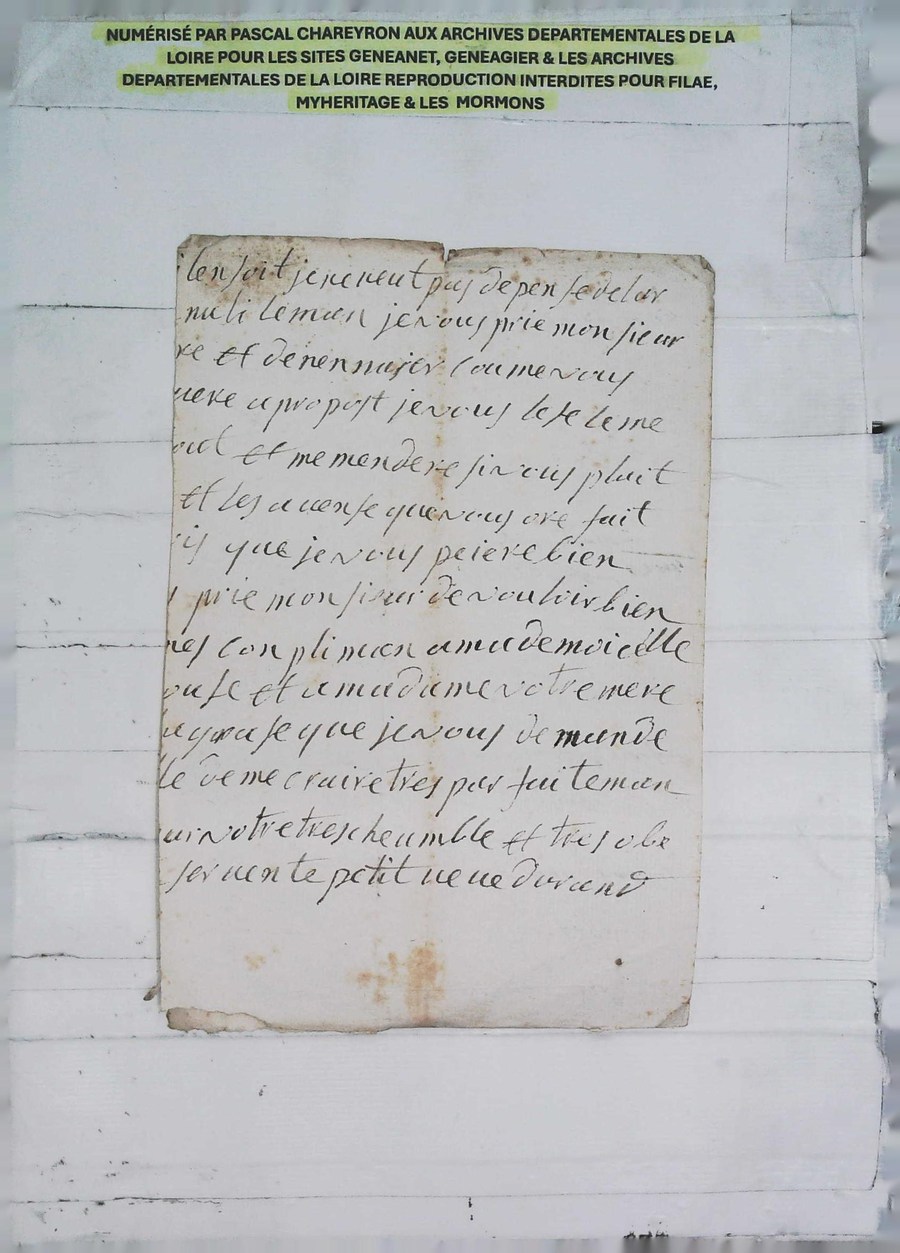 NUMÉRISÉ PAR PASCAL CHAREYRON AUX ARCHIVES DEPARTEMENTALES DE LA
LOIRE POUR LES SITES GENEANET, GENEAGIER & LES ARCHIVES
DEPARTEMENTALES DE LA LOIRE REPRODUCTION INTERDITES POUR FILAE,
MYHERITAGE & LES MORMONS
ilensoit jeneveut pas depensedelar
nuti leman jevous prie monsieur
re et denen coumevous
uere apropost jevous lese leme
et memendere sivous plait
et les avense quevous ore fait
is que jevous peierebien
prie monsieur devouloirbien
mes conpliman amademoiselle
ouse et amadamevotremere
agrase que jevous demande
le deme crairetres parfaiteman
eur votretrescheumble et tres obe
servente petit neveu durand